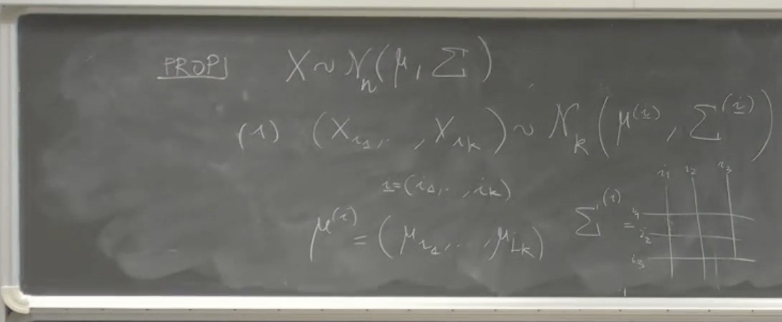 PROP] X ~ N_n(μ, Σ)
(1) (X_{i_1}, .., X_{i_k}) ~ N_k(μ^{(i)}, Σ^{(i)})
i = (i_1, .., i_k)
μ^{(i)} = (μ_{i_1}, .., μ_{i_k}) Σ^{(i)} =
i_1 i_2 i_3
i_1
i_2
i_3